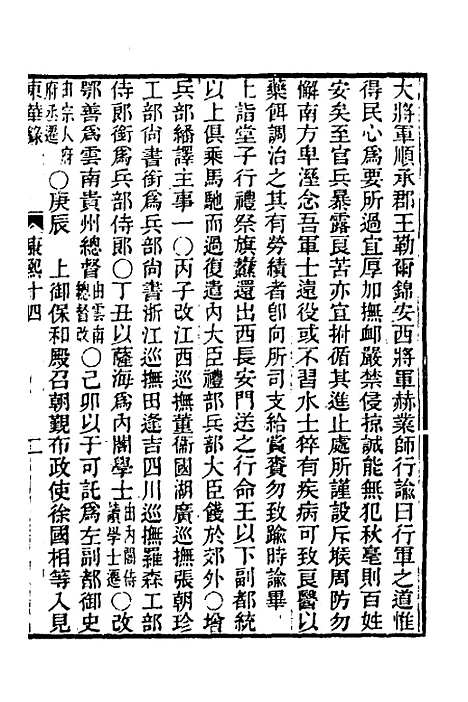 大將軍順承郡王勒爾錦安西將軍赫業師行諭曰行軍之道惟
得民心爲要所過宜厚加撫衈嚴禁侵掠誠能無犯秋毫則百姓
安矣至官兵暴露良苦亦宜拊循其進止處所謹設斥堠周防勿
懈南方卑溼念吾軍士遠役或不習水土猝有疾病可致良醫以
藥餌調治之其有勞績者卽向所司支給賞賚勿致踰時諭畢
上詣堂子行禮祭旗纛還出西長安門送之行命王以下副都統
以上俱乘馬馳而過復遣內大臣禮部兵部大臣餞於郊外〇增
兵部繙譯主事一〇丙子改江西巡撫董衞國湖廣巡撫張朝珍
工部尚書銜爲兵部尚書浙江巡撫田逢吉四川巡撫羅森工部
侍郎銜爲兵部侍郎〇丁丑以薩海爲內閣學士由內閣侍讀學士遷〇改
鄂善爲雲南貴州總督由雲南總督改〇己卯以于可託爲左副都御史
由宗人府府丞遷〇庚辰 上御保和殿召朝覲布政使徐國相等入見
東華錄 康熙十四 二